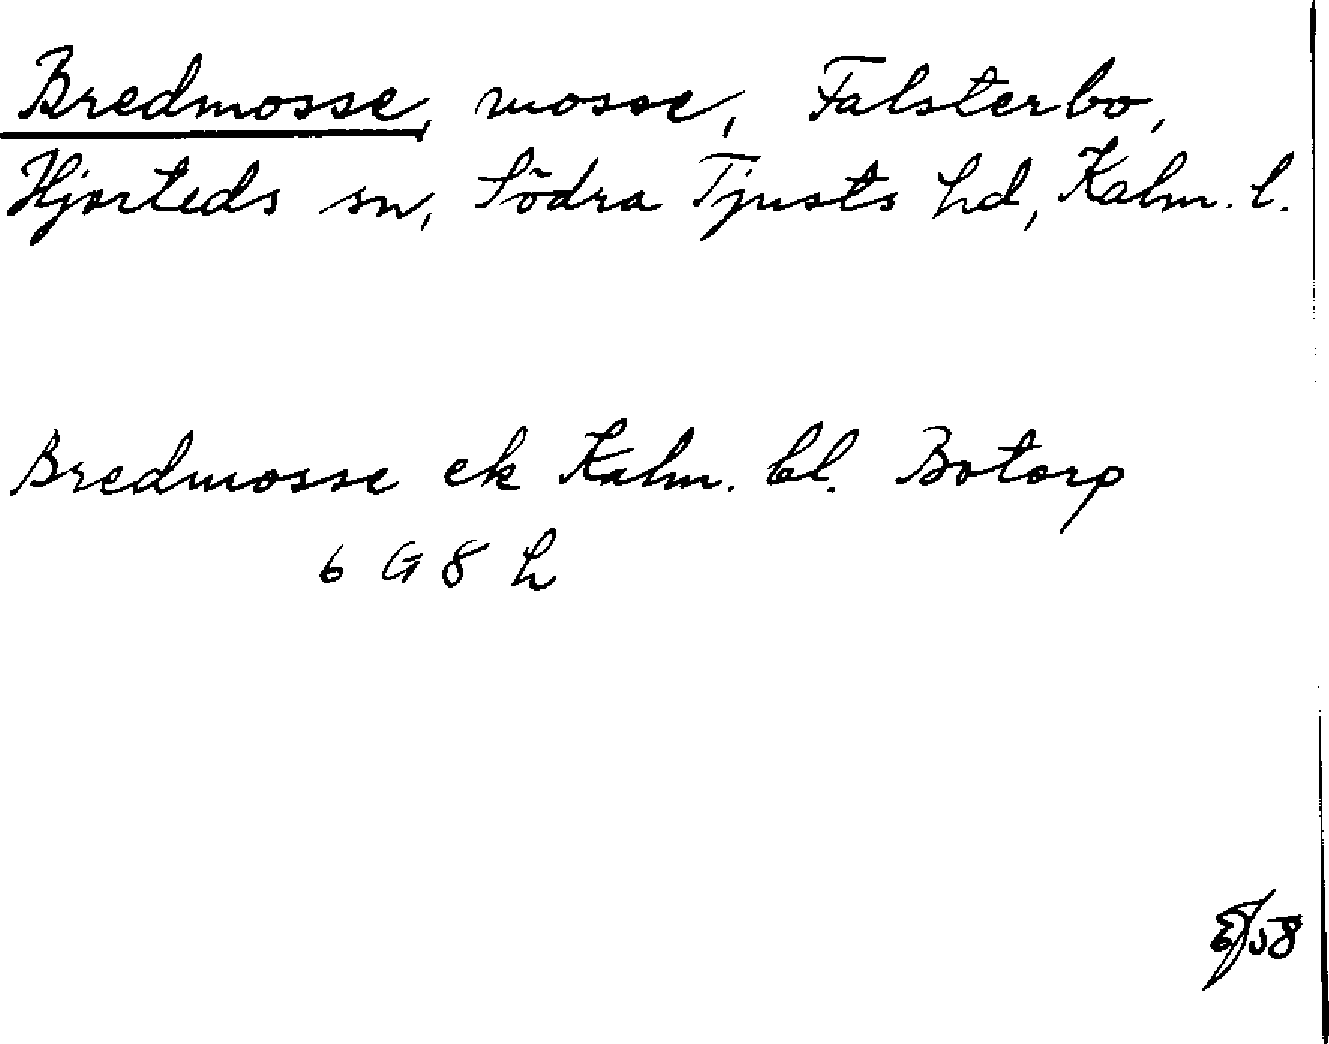 Bredmosse, mosse, Falsterbo,
Hjorteds sn, Södra Tjusts hd, Kalm. l.
Bredmosse ek Kalm. bl. Botorp
6 G 8 h